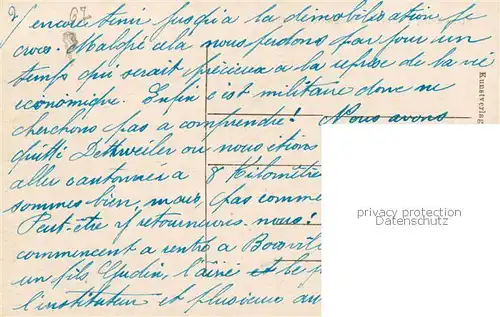 2/
62
encore tenir jusqu'a la démobilisation je
crois. Malgré cela nous perdons par jour un
temps qui serait précieux a la reprise de la vie
economique. Enfin c'est militaire donc ne
cherchons pas a comprendre! Nous avons
quitté Dettweiler ou nous étions
aller cantonnés a 8 Kilomètre
sommes bien, mais pas comme
Peut-être y retournerons nous!
commencent a rentré a Bouvil
un fils Gudin, l'ainé et le p
l'instituteur et plusieurs au
Kunstverlag
privacy protection